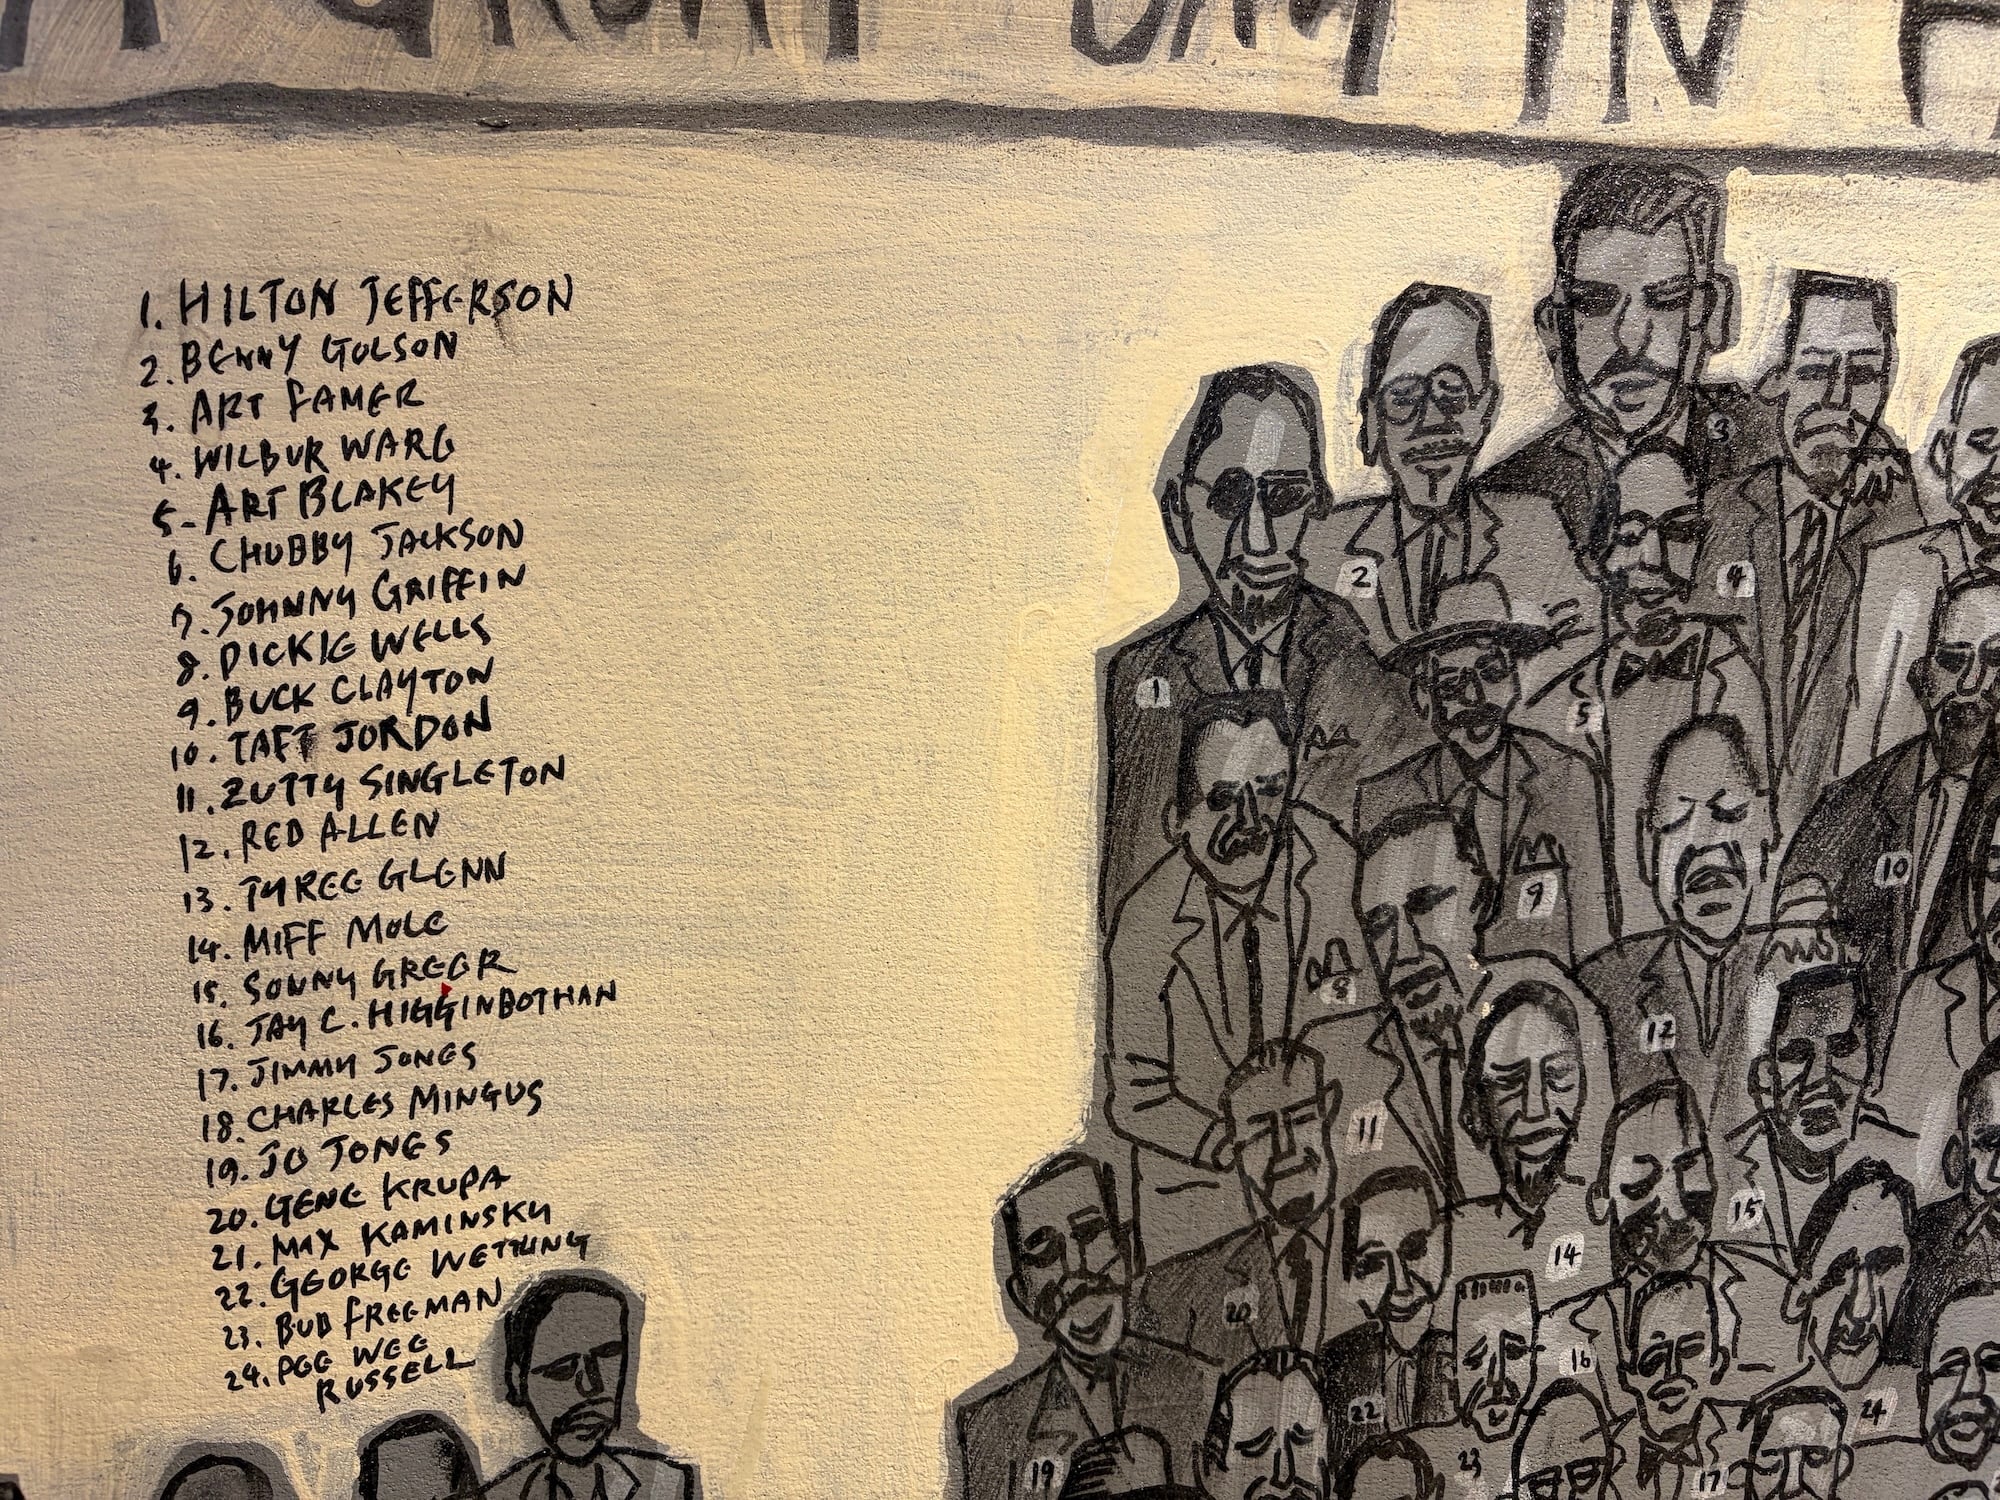 A GREAT DAY IN
1. HILTON JEFFERSON
2. BENNY GOLSON
3. ART FAMER
4. WILBUR WARG
5- ART BLAKEY
6. CHUBBY JACKSON
7. JOHNNY GRIFFIN
8. DICKIE WELLS
9. BUCK CLAYTON
10. TAFT JORDON
11. ZUTTY SINGLETON
12. RED ALLEN
13. TYREE GLENN
14. MIFF MOLE
15. SONNY GREER
16. JAY C. HIGGINBOTHAN
17. JIMMY JONES
18. CHARLES MINGUS
19. JO JONES
20. GENE KRUPA
21. MAX KAMINSKY
22. GEORGE WETTLING
23. BUD FREEMAN
24. PEE WEE
RUSSELL
3
2
4
1
5
10
9
8
12
11
15
14
20
16
22
24
23
19
17